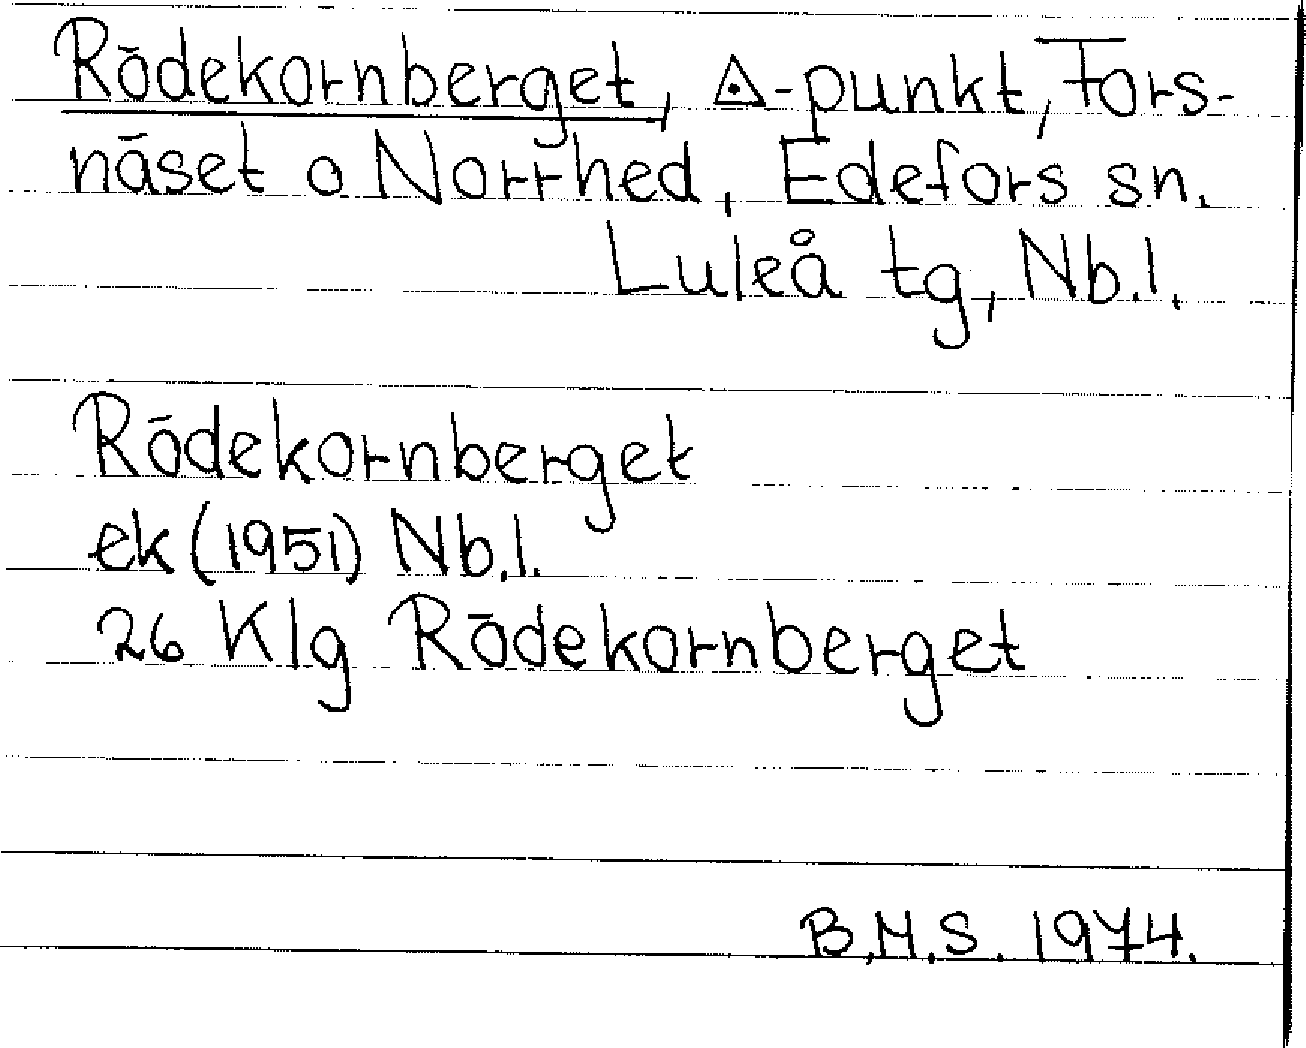 Rödekornberget, ◬-punkt, Fors-
näset o Norrhed, Edefors sn.
Luleå tg, Nb.l.
Rödekornberget
ek (1951) Nb.l.
26 Klg Rödekornberget
B.M.S. 1974.